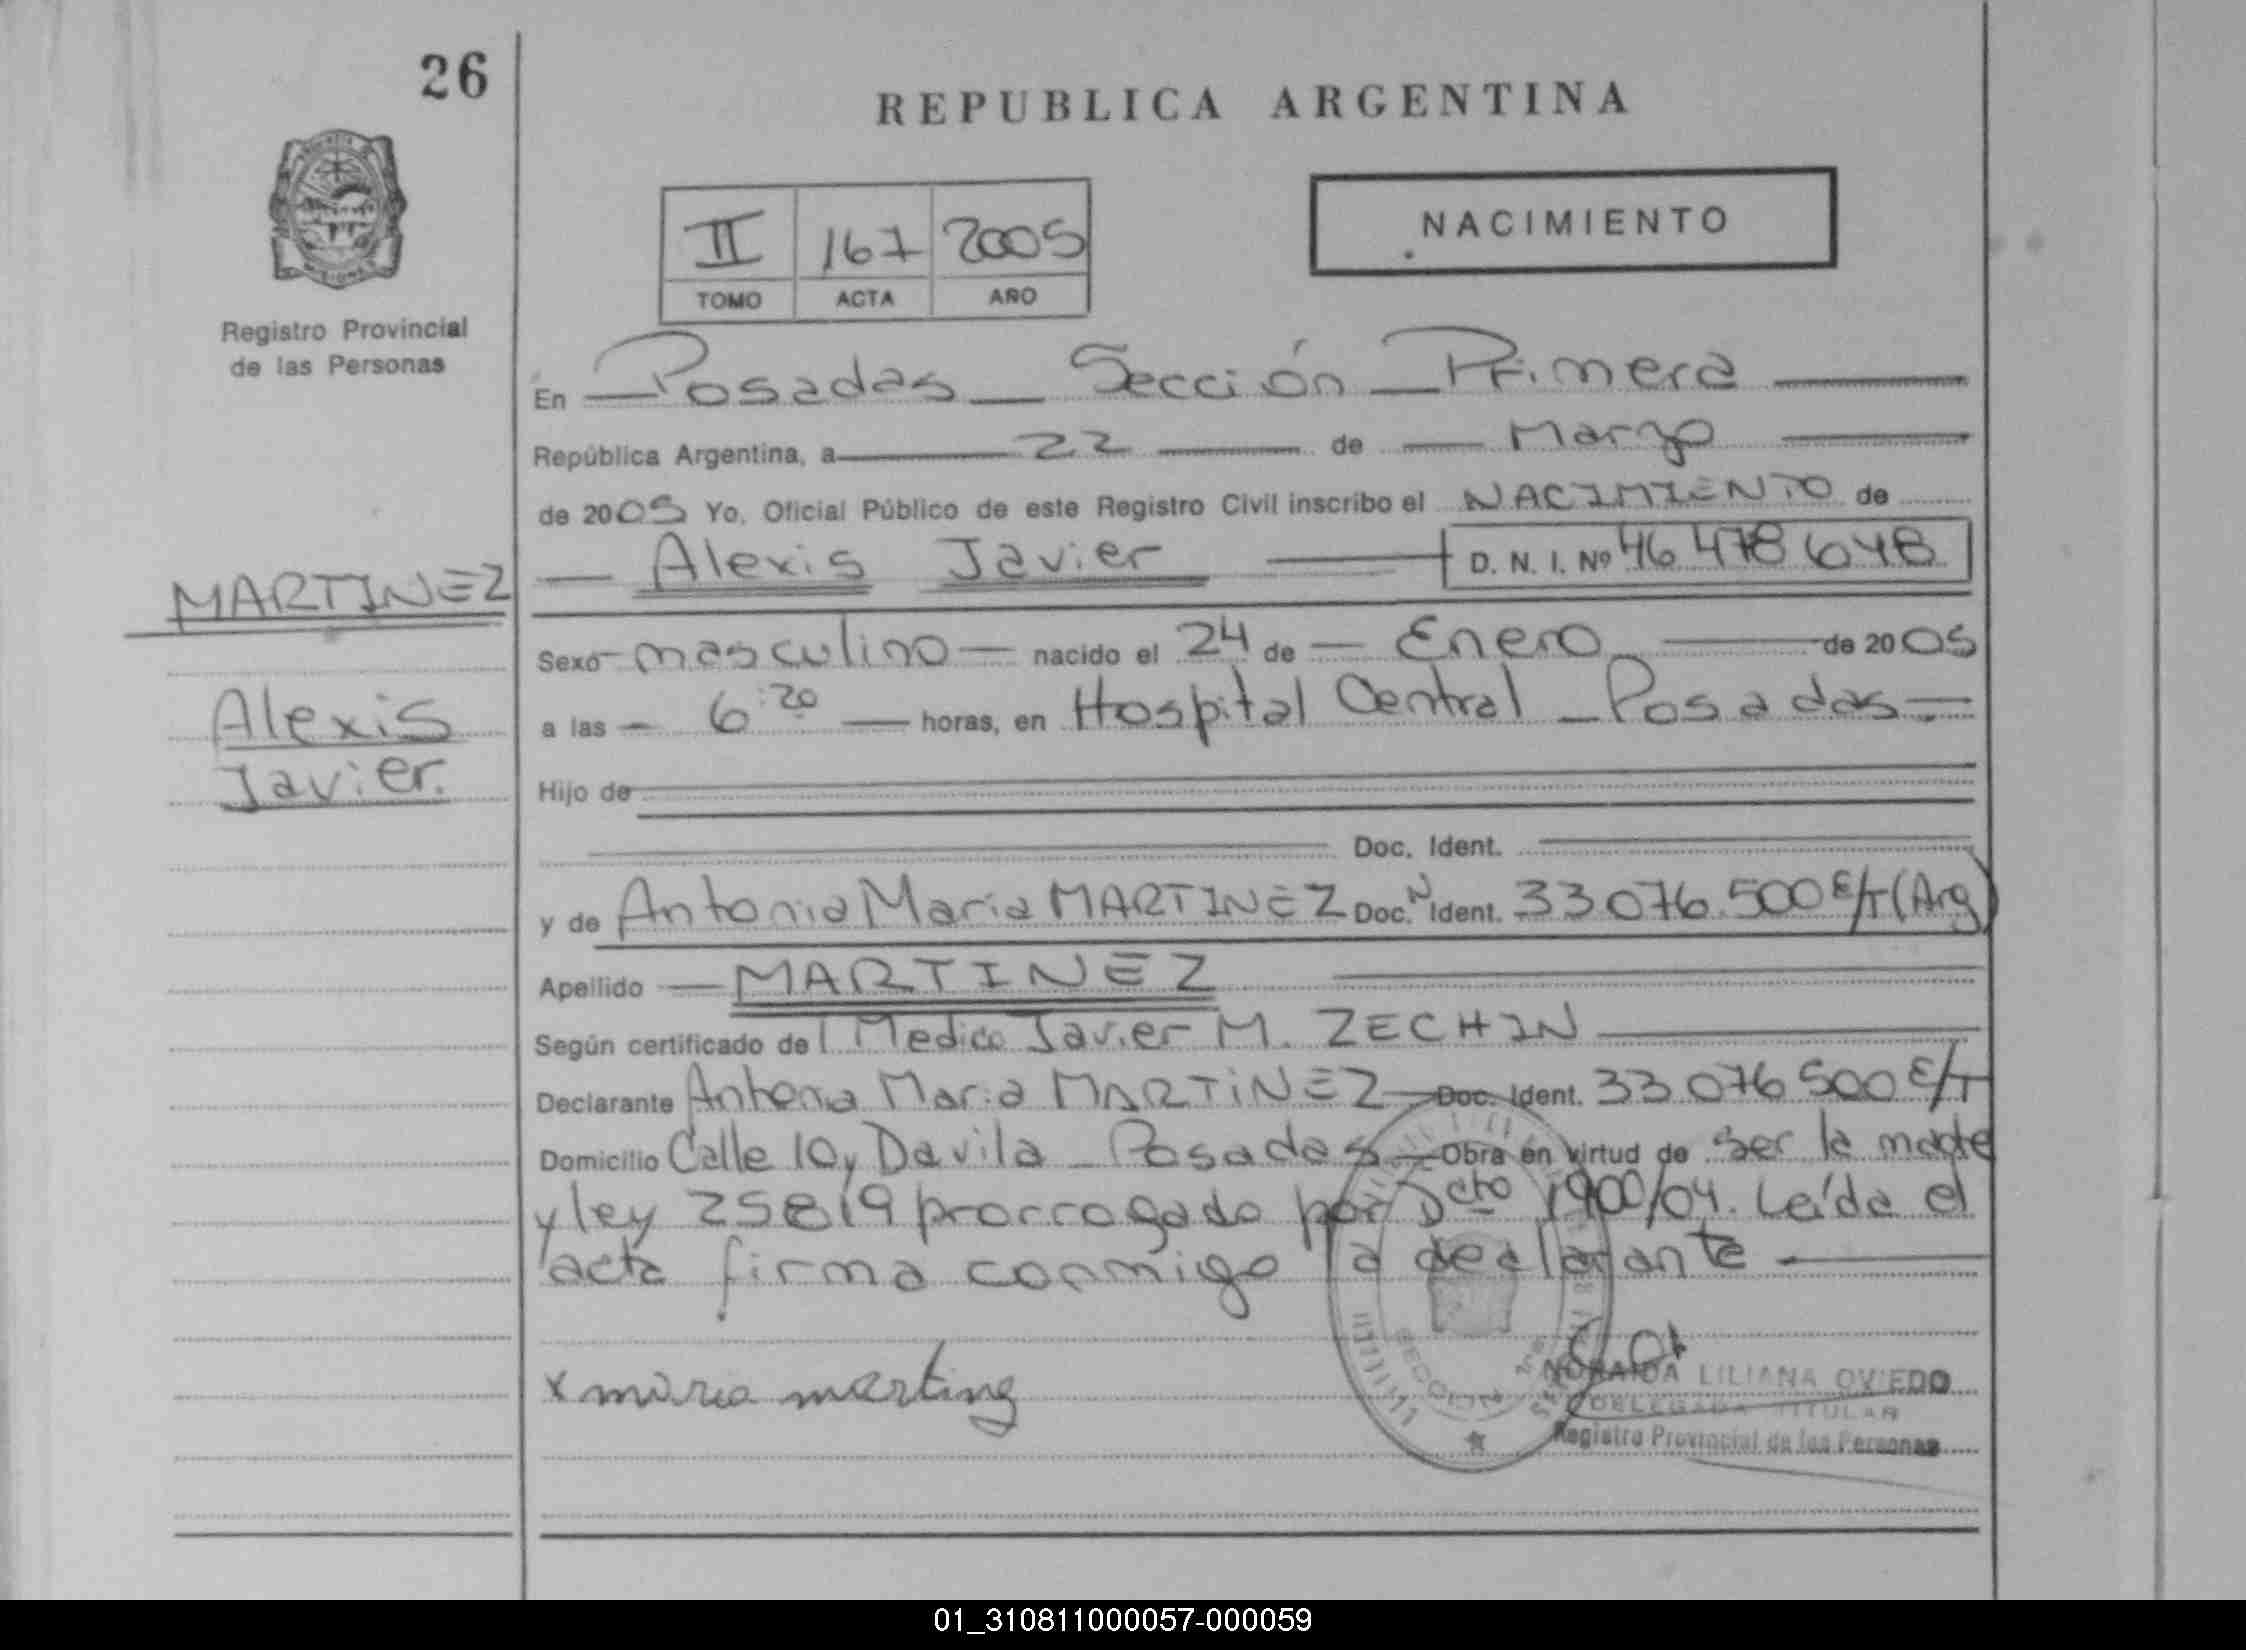 26
REPUBLICA ARGENTINA
NACIMIENTO
II 167 2005
TOMO ACTA AÑO
Registro Provincial
de las Personas
En Posadas Sección Primera
República Argentina, a 22 de Marzo
de 2005 Yo, Oficial Público de este Registro Civil inscribo el NACIMIENTO de
Alexis Javier D. N. I. Nº 46 478 648
MARTINEZ
Alexis
Javier.
Sexo masculino nacido el 24 de Enero de 2005
a las 6:20 horas, en Hospital Central Posadas
Hijo de
Doc. Ident.
y de Antonia Maria MARTINEZ Doc. N Ident. 33.076.500 E/T (Arg)
Apellido MARTINEZ
Según certificado del Medico Javier M. ZECHIN
Declarante Antonia Maria MARTINEZ Doc. Ident. 33 076 500 E/T
Domicilio Calle 10 y Davila Posadas Obra en virtud de ser la madre
y ley 25819 prorrogado por Dcto 1900/04. Leída el
acta firma conmigo la declarante
x maria martinez
LILIANA OVIEDO
DELEGADA TITULAR
Registro Provincial de las Personas
01_310811000057-000059